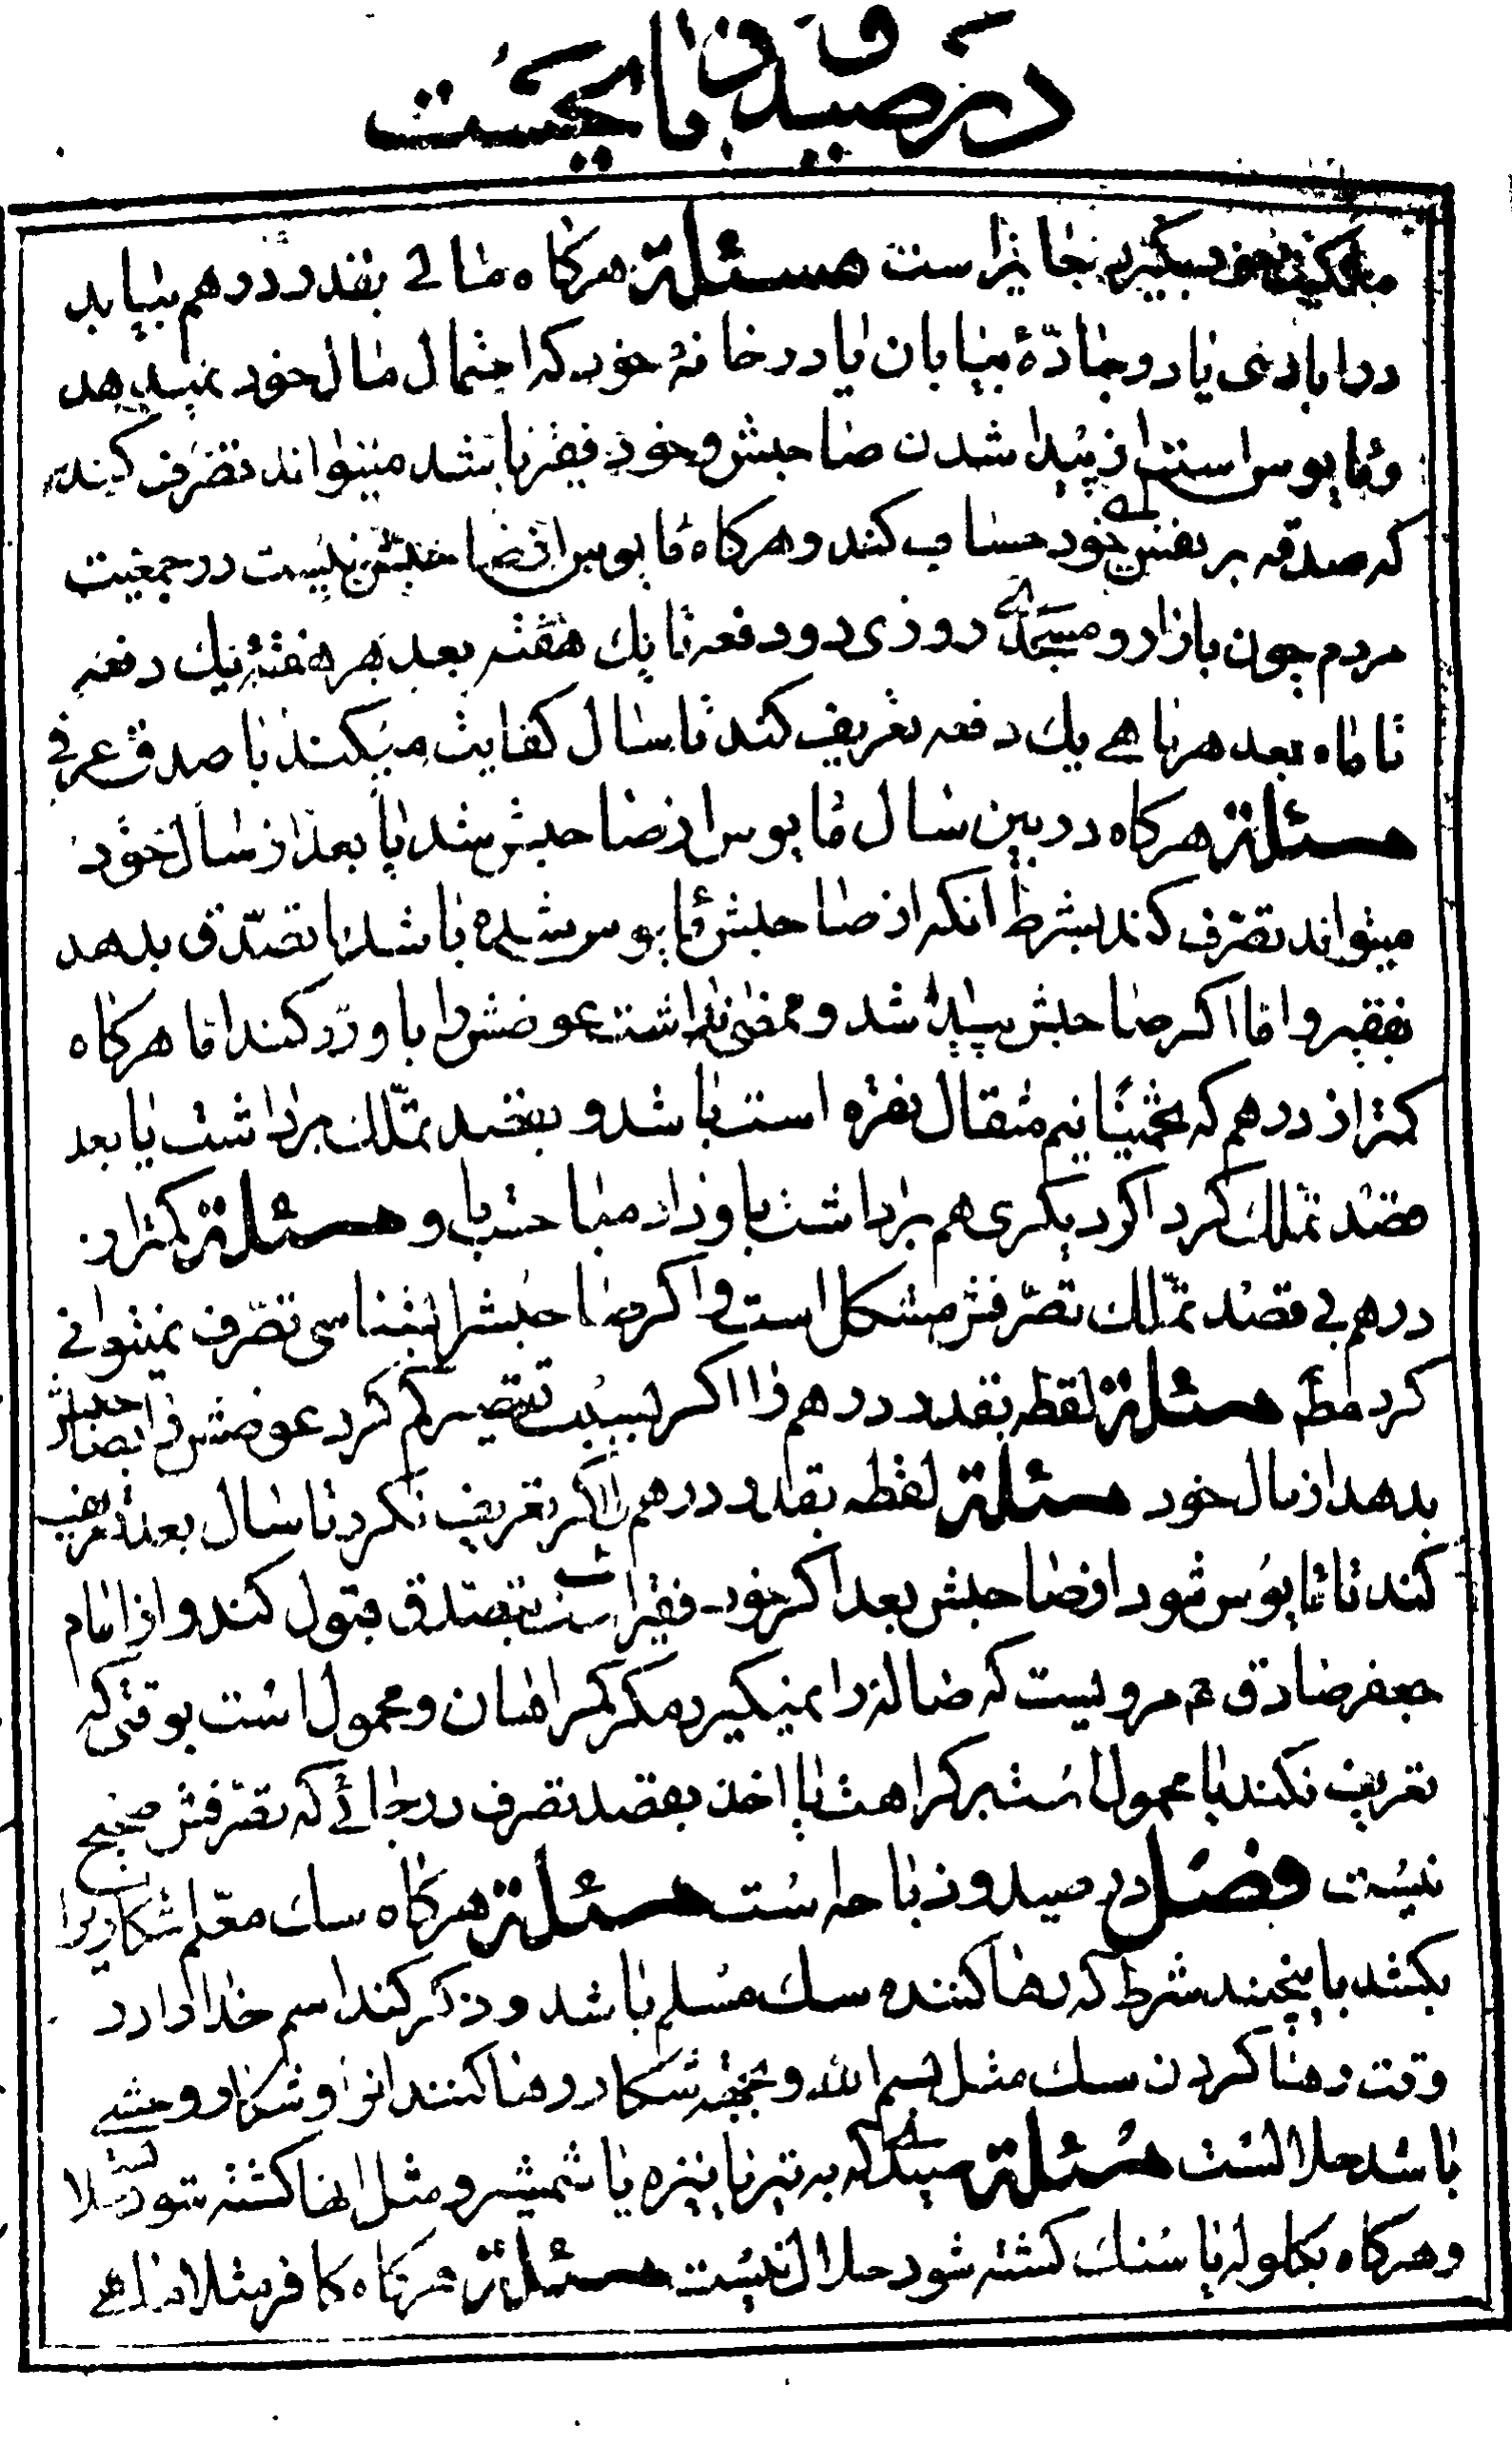 در صید و ذباحیست
بملکیت خود بگیرد جایز است مسئلة هرکاه مالی بقدر درهم بیابد
در ابادی یا در جادّهٔ بیابان یا در خانهٔ خود که احتمال مال خود نمیدهد
و مایوس است از پیدا شدن صاحبش و خود فقیر باشد میتواند تصرف کند
که صدقه بر نفس خود حساب کند و هرکاه مایوس از صاحبش نیست در جمعیت
مردم چون بازار و مسجد روزی دو دفعه تا یك هفته بعد هر هفتهٔ یك دفعه
تا ماه بعد هر ماهی یك دفعه تعریف کند تا سال کفایت میکند با صدق عرفی
مسئلة هرکاه در بین سال مایوس از صاحبش شد یا بعد از سال خود
میتواند تصرّف کند بشرط انکه از صاحبش مایوس شده باشد یا تصدّق بدهد
بفقیر و امّا اکر صاحبش پیدا شد و ممضی نداشت عوضش را باو ردّ کند امّا هرکاه
کمتر از درهم که تخمینًا نیم مثقال نقره است باشد و بقصد تملّك برداشت یا بعد
قصد تملّك کرد اکر دیکری هم برداشت باو داد مباحست باو مسئلة کمتر از
درهم بی قصد تملّك تصرّفش مشکل است و اکر صاحبشرا بشناسی تصرّف نمیتوانی
کرد مط مسئلة لقطه بقدر درهم را اکر بسبب تقصیر کم کرد عوضش را بصاحبش
بدهد از مال خود مسئلة لقطه بقدر درهم را اکر تعریف نکرد تا سال بعد تعریف
کند تا مایوس شود از صاحبش بعد اکر خود فقیر است بتصدّق قبول کند و از امام
جعفر صادق ع مرویست که ضاله را نمیکیرد مکر کمراهان و محمول است بوقتی که
تعریف نکند یا محمول است بر کراهت یا اخذ بقصد تصرف در جائی که تصرّفش صحیح
نیست فصل در صید و ذباحه است مسئلة هرکاه سك معلّم شکاریرا
بکشد با پنجند شرط که رها کننده سك مسلم باشد و ذکر کند اسم خدا را در
وقت رها کردن سك مثل بسم الله و بجهة شکار رها کند انرا و شکار وحشی
باشد حلالست مسئلة صیدی که به تیر یا نیزه یا شمشیر و مثل انها کشته شود حلالست
و هرکاه بکلوله یا سنك کشته شود حلال نیست مسئلة هرکاه کافر مثلا ماهی